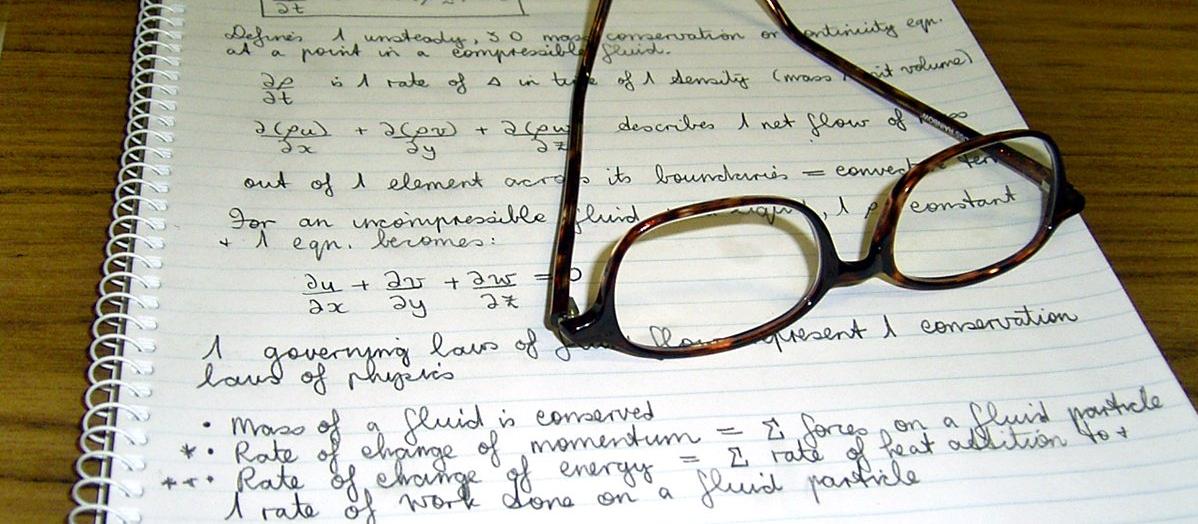 ∂t
Defines 1 unsteady, 3D mass conservation or continuity eqn.
at a point in a compressible fluid.
∂ρ/∂t is 1 rate of Δ in time of 1 density (mass unit volume)
∂(ρu)/∂x + ∂(ρv)/∂y + ∂(ρw)/∂z describes 1 net flow of mass
out of 1 element across its boundaries = convective term
For an incompressible fluid 1 ρ constant
+ 1 eqn. becomes:
∂u/∂x + ∂v/∂y + ∂w/∂z = 0
1 governing laws of flow represent 1 conservation
laws of physics
• Mass of a fluid is conserved
* • Rate of change of momentum = Σ forces on a fluid particle
** • Rate of change of energy = Σ rate of heat addition to +
1 rate of work done on a fluid particle